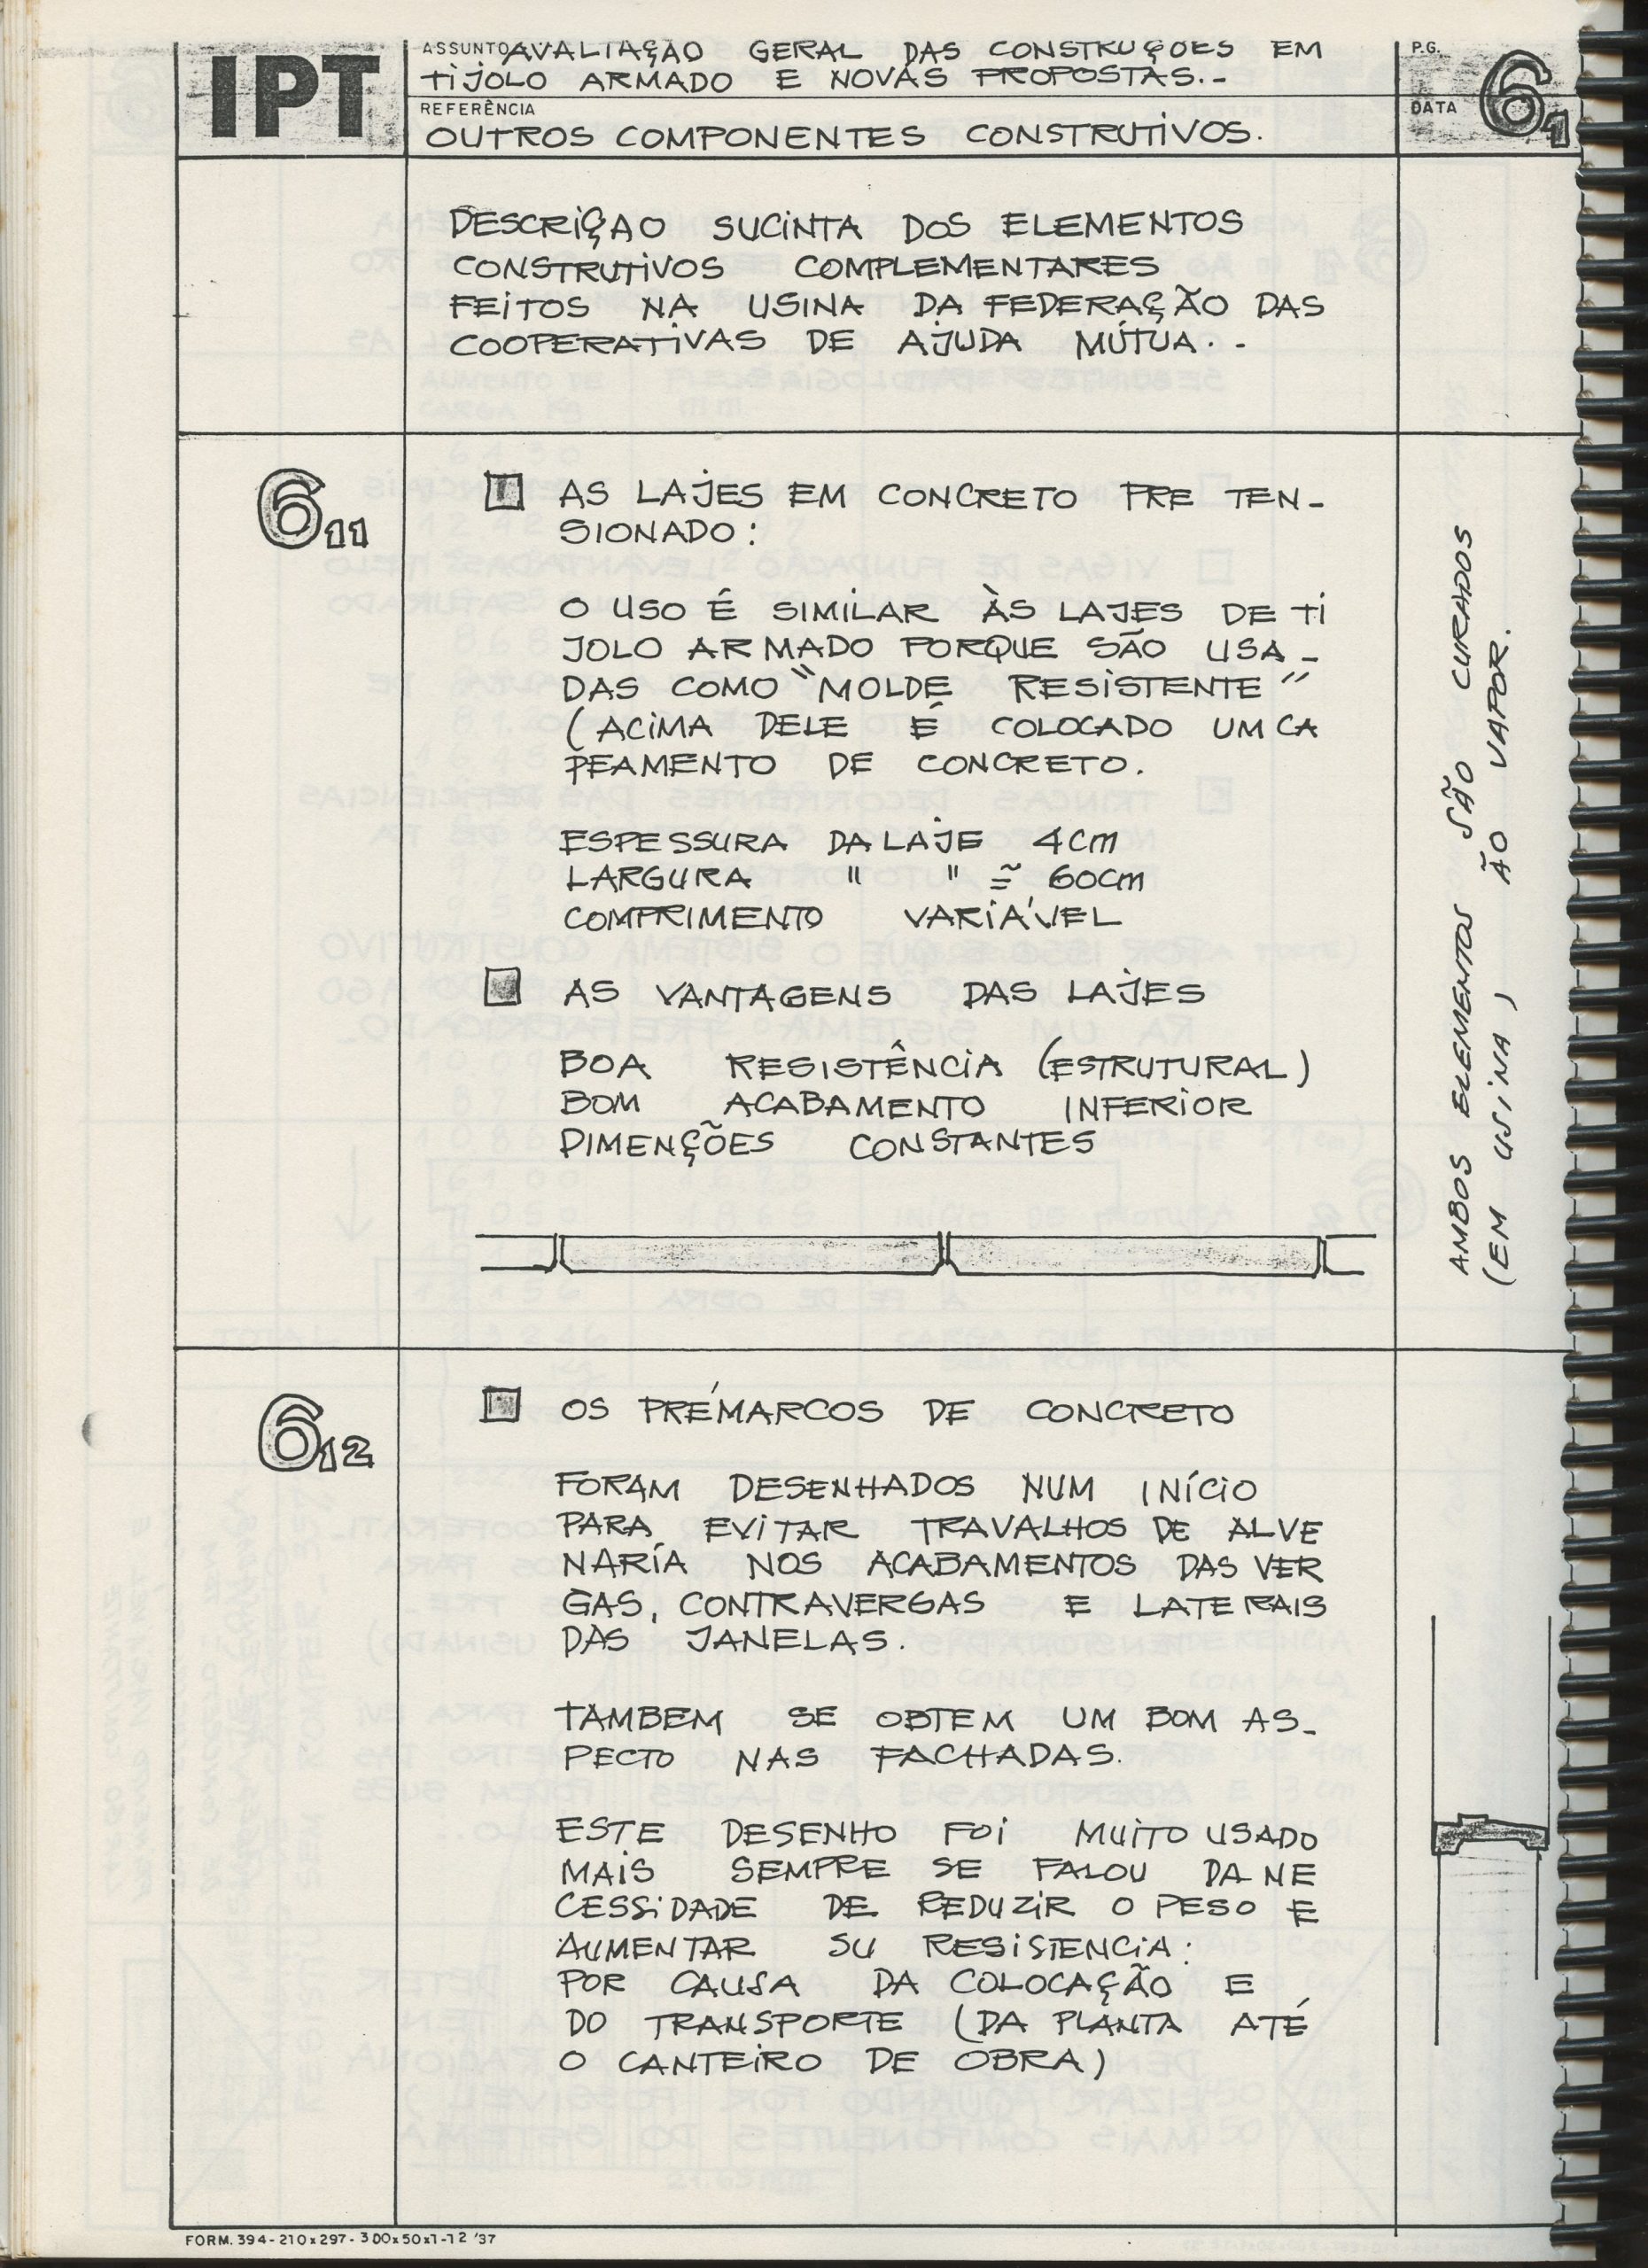 IPT
ASSUNTO AVALIAÇÃO GERAL DAS CONSTRUÇÕES EM
TIJOLO ARMADO E NOVAS PROPOSTAS.-
REFERÊNCIA
OUTROS COMPONENTES CONSTRUTIVOS.
P.G.
DATA
6 1
DESCRIÇAO SUCINTA DOS ELEMENTOS
CONSTRUTIVOS COMPLEMENTARES
FEITOS NA USINA DA FEDERAÇÃO DAS
COOPERATIVAS DE AJUDA MÚTUA. -
6 11
AS LAJES EM CONCRETO PRE TEN-
SIONADO:
O USO É SIMILAR ÀS LAJES DE TI
JOLO ARMADO PORQUE SÃO USA-
DAS COMO "MOLDE RESISTENTE"
(ACIMA DELE É COLOCADO UM CA
PEAMENTO DE CONCRETO.
ESPESSURA DA LAJE 4cm
LARGURA " " ≅ 60cm
COMPRIMENTO VARIÁVEL
AS VANTAGENS DAS LAJES
BOA RESISTÊNCIA (ESTRUTURAL)
BOM ACABAMENTO INFERIOR
DIMENÇÕES CONSTANTES
AMBOS ELEMENTOS SÃO CURADOS
(EM USINA) ÃO VAPOR.
6 12
OS PRÉMARCOS DE CONCRETO
FORAM DESENHADOS NUM INÍCIO
PARA EVITAR TRAVALHOS DE ALVE
NARÍA NOS ACABAMENTOS DAS VER
GAS, CONTRAVERGAS E LATERAIS
DAS JANELAS.
TAMBEM SE OBTEM UM BOM AS-
PECTO NAS FACHADAS.
ESTE DESENHO FOI MUITO USADO
MAIS SEMPRE SE FALOU DA NE
CESSIDADE DE REDUZIR O PESO E
AUMENTAR SU RESISTENCIA:
POR CAUSA DA COLOCAÇÃO E
DO TRANSPORTE (DA PLANTA ATÉ
O CANTEIRO DE OBRA)
FORM. 394-210x297-300x50x1-12 '37